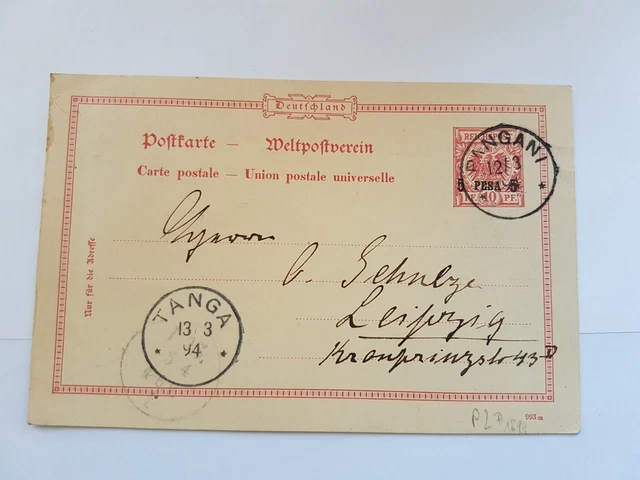 Deutschland
Postkarte — Weltpostverein
Carte postale — Union postale universelle
REICHSPOST
5 PESA 5
10 PF.
PANGANI
12/3
Nur für die Adresse
Herrn
C. Schulze
Leipzig
Kronprinzstr 43
TANGA
13/3
94
993 a